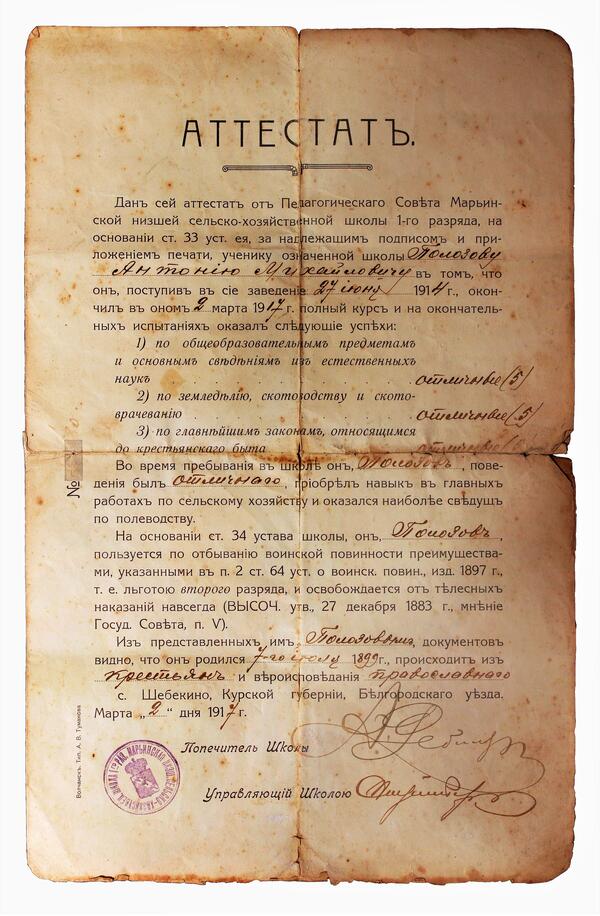 АТТЕСТАТЪ.
Данъ сей аттестатъ отъ Педагогическаго Совѣта Марьин-
ской низшей сельско-хозяйственной школы 1-го разряда, на
основаніи ст. 33 уст. ея, за надлежащимъ подписомъ и при-
ложеніемъ печати, ученику означенной школы Полозову
Антонію Михайловичу въ томъ, что
онъ, поступивъ въ сіе заведеніе 27 іюня 1914 г., окон-
чилъ въ ономъ 2 марта 1917 г. полный курсъ и на окончатель-
ныхъ испытаніяхъ оказалъ слѣдующіе успѣхи:
1) по общеобразовательнымъ предметамъ
и основнымъ свѣдѣніямъ изъ естественныхъ
наукъ . . . . . . . . . отличные (5)
2) по земледѣлію, скотоводству и ското-
врачеванію . . . . . . . отличные (5)
3) по главнѣйшимъ законамъ, относящимся
до крестьянскаго быта . . . . отличные (5
№
Во время пребыванія въ школѣ онъ, Полозовъ, пове-
денія былъ отличнаго, пріобрѣлъ навыкъ въ главныхъ
работахъ по сельскому хозяйству и оказался наиболѣе свѣдущъ
по полеводству.
На основаніи ст. 34 устава школы, онъ, Полозовъ,
пользуется по отбыванію воинской повинности преимущества-
ми, указанными въ п. 2 ст. 64 уст. о воинск. повин., изд. 1897 г.,
т. е. льготою второго разряда, и освобождается отъ тѣлесныхъ
наказаній навсегда (ВЫСОЧ. утв., 27 декабря 1883 г., мнѣніе
Госуд. Совѣта, п. V).
Изъ представленныхъ имъ, Полозовымъ, документовъ
видно, что онъ родился 7-го іюля 1899 г., происходитъ изъ
крестьянъ и вѣроисповѣданія православнаго
с. Шебекино, Курской губерніи, Бѣлгородскаго уѣзда.
Марта „2" дня 1917 г.
Попечитель Школы
Управляющій Школою
Волчанскъ. Тип. А. В. Туманова